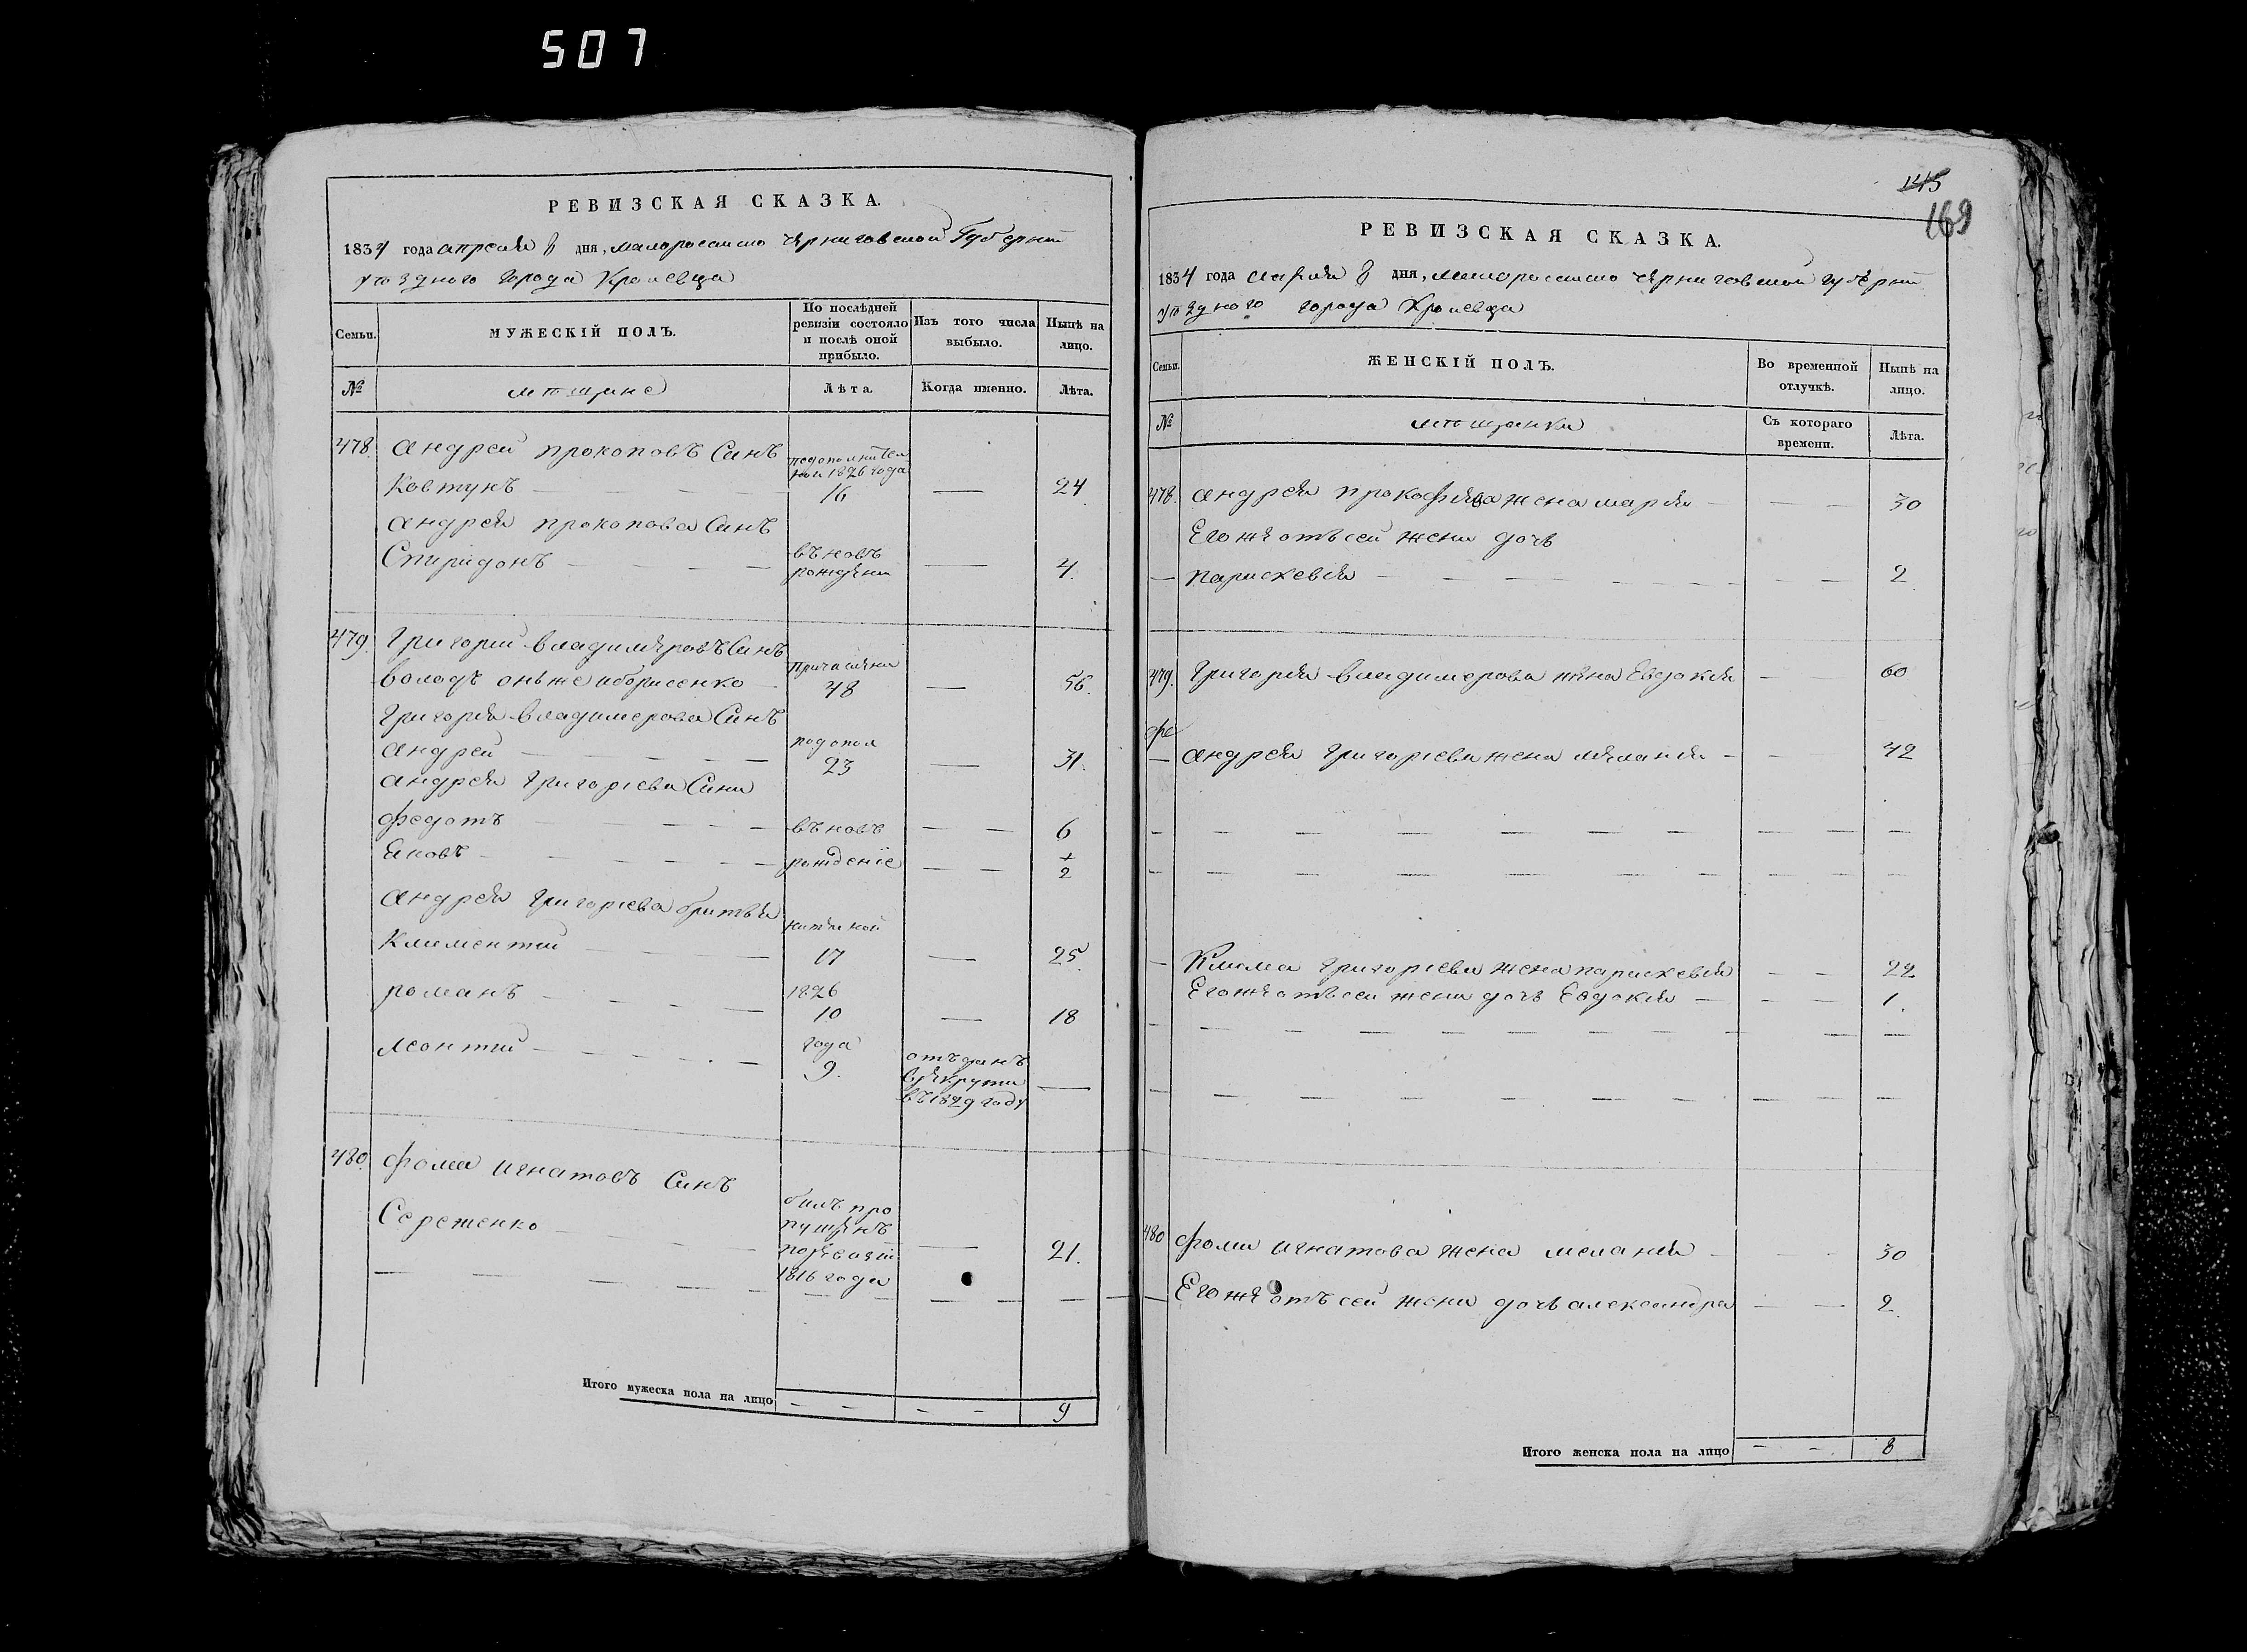 507
РЕВИЗСКАЯ СКАЗКА.
1834 года апреля 8 дня, малоросийско черниговской Губерній
уѣздного города Кролевца
Семьи.
МУЖЕСКІЙ ПОЛЪ.
По послѣдней ревизіи состояло и послѣ оной прибыло.
Изъ того числа выбыло.
Нынѣ на лицо.
№
мѣщане
Лѣта.
Когда именно.
Лѣта.
478. Андрей прокоповъ Синъ
Ковтунъ — 16 — 24
1826 года
Андрея прокопова Синъ
Спиридонъ — въновъ рожденни — 4.
479. Григорий владимеровъ Синъ
48 — 56.
Григорія владимерова Синъ
андрей — подопол 23 — 31.
андрея Григоріева Сини
федотъ — въновъ — 6
Яковъ — рожденіе — + 2
Андрея Григоріева
Климентий — 17 — 25.
романъ — 1826 10 — 18
леонтий — года 9. отъданъ врекрути въ1829 году —
480. фома игнатовъ Синъ
Сереженко — билъ пропущенъ поревизіи 1816 года — 21.
Итого мужеска пола на лицо — — — — 9
145
169
РЕВИЗСКАЯ СКАЗКА.
1834 года апреля 8 дня, малоросийско черниговской губерній
уѣздного города Кролевца
Семьи.
ЖЕНСКІЙ ПОЛЪ.
Во временной отлучкѣ.
Нынѣ на лицо.
№
мѣщанки
Съ котораго времени.
Лѣта.
478. андрея прокофиева жена марія — 30
Егоже отъсей жени дочь
— параскевія — 2
479. Григорія владимерова жена Евдокія — 60
— андрея григоріева жена меланія — 42
— Клима григоріева жена параскевія — 22
Егоже отъсей жени дочь Евдокія — 1.
480 фоми игнатова жена меланія — 30
— Егоже отъсей жени дочь александра — 2
Итого женска пола на лицо — — 8